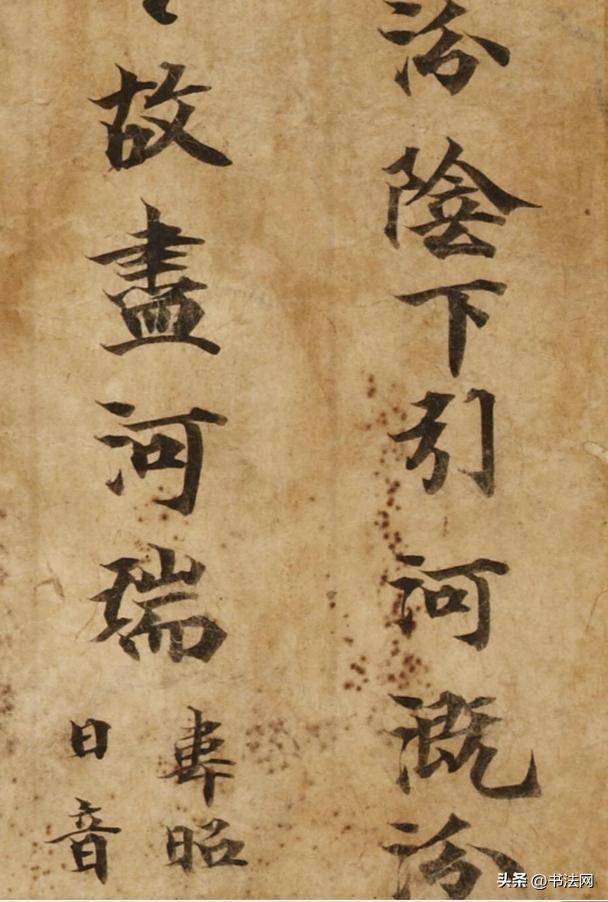 汾陰下引河溉汾
故盡河瑞
韋昭
曰音
头条 @书法网